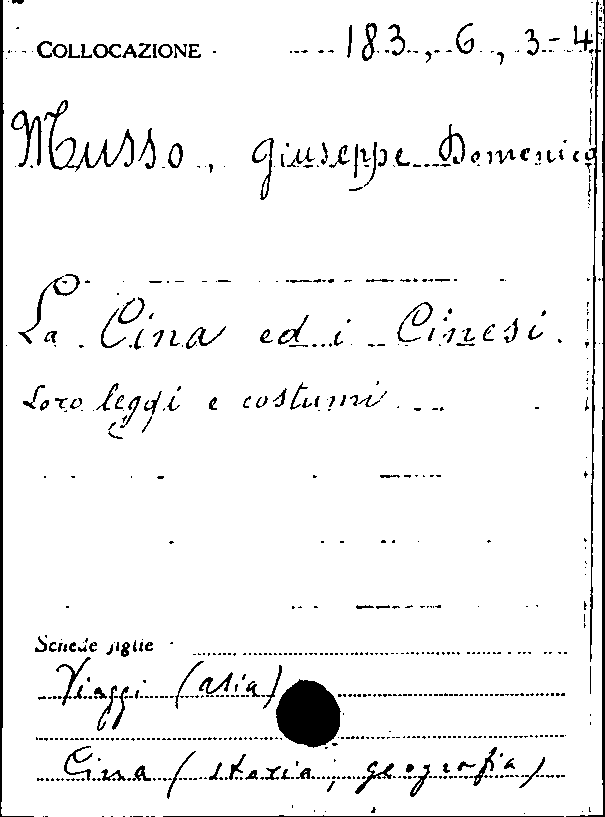 COLLOCAZIONE 183, 6, 3-4
Musso, Giuseppe Domenico
La Cina ed i Cinesi.
Loro leggi e costumi
Schede figlie
Viaggi (asia)
Cina (storia, geografia)